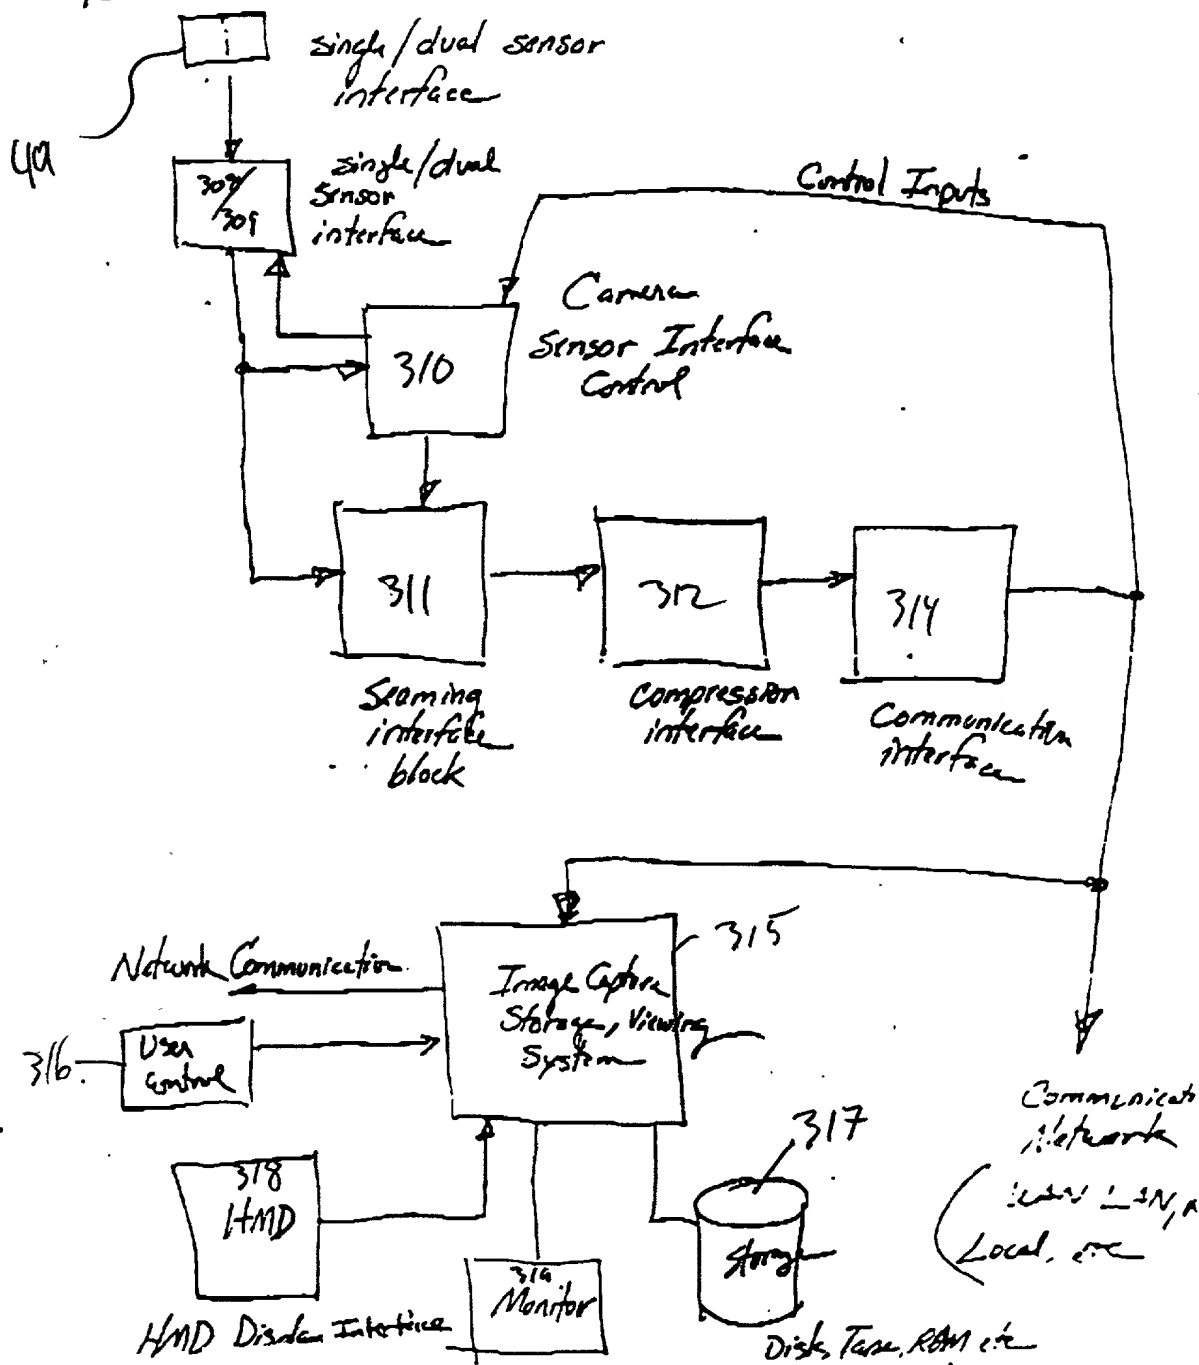 single/dual sensor
interface
49
308/
309
single/dual
sensor
interface
Control Inputs
Camera
Sensor Interface
Control
310
311
312
314
Seaming
interface
block
compression
interface
Communication
interface
315
Network Communication
Image Capture
Storage, Viewing
System
316
User
control
317
318
HMD
Storage
Monitor
HMD Display Interface
Disk, Tape, RAM etc
Network
LAN,
Local, etc